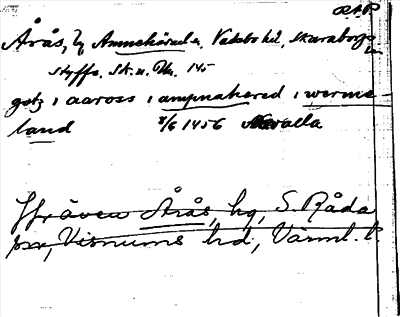 RAP
Årås, hg Amnehärads, Vadsbo hd, Skaraborgs
Styffe, Sk. u. Un. 145
gotz i aaross i ampnahered i werme-
land 8/6 1456 Skvalla
Jfr även Årås, hg, S. Råda
sn, Visnums hd, Värml. l.